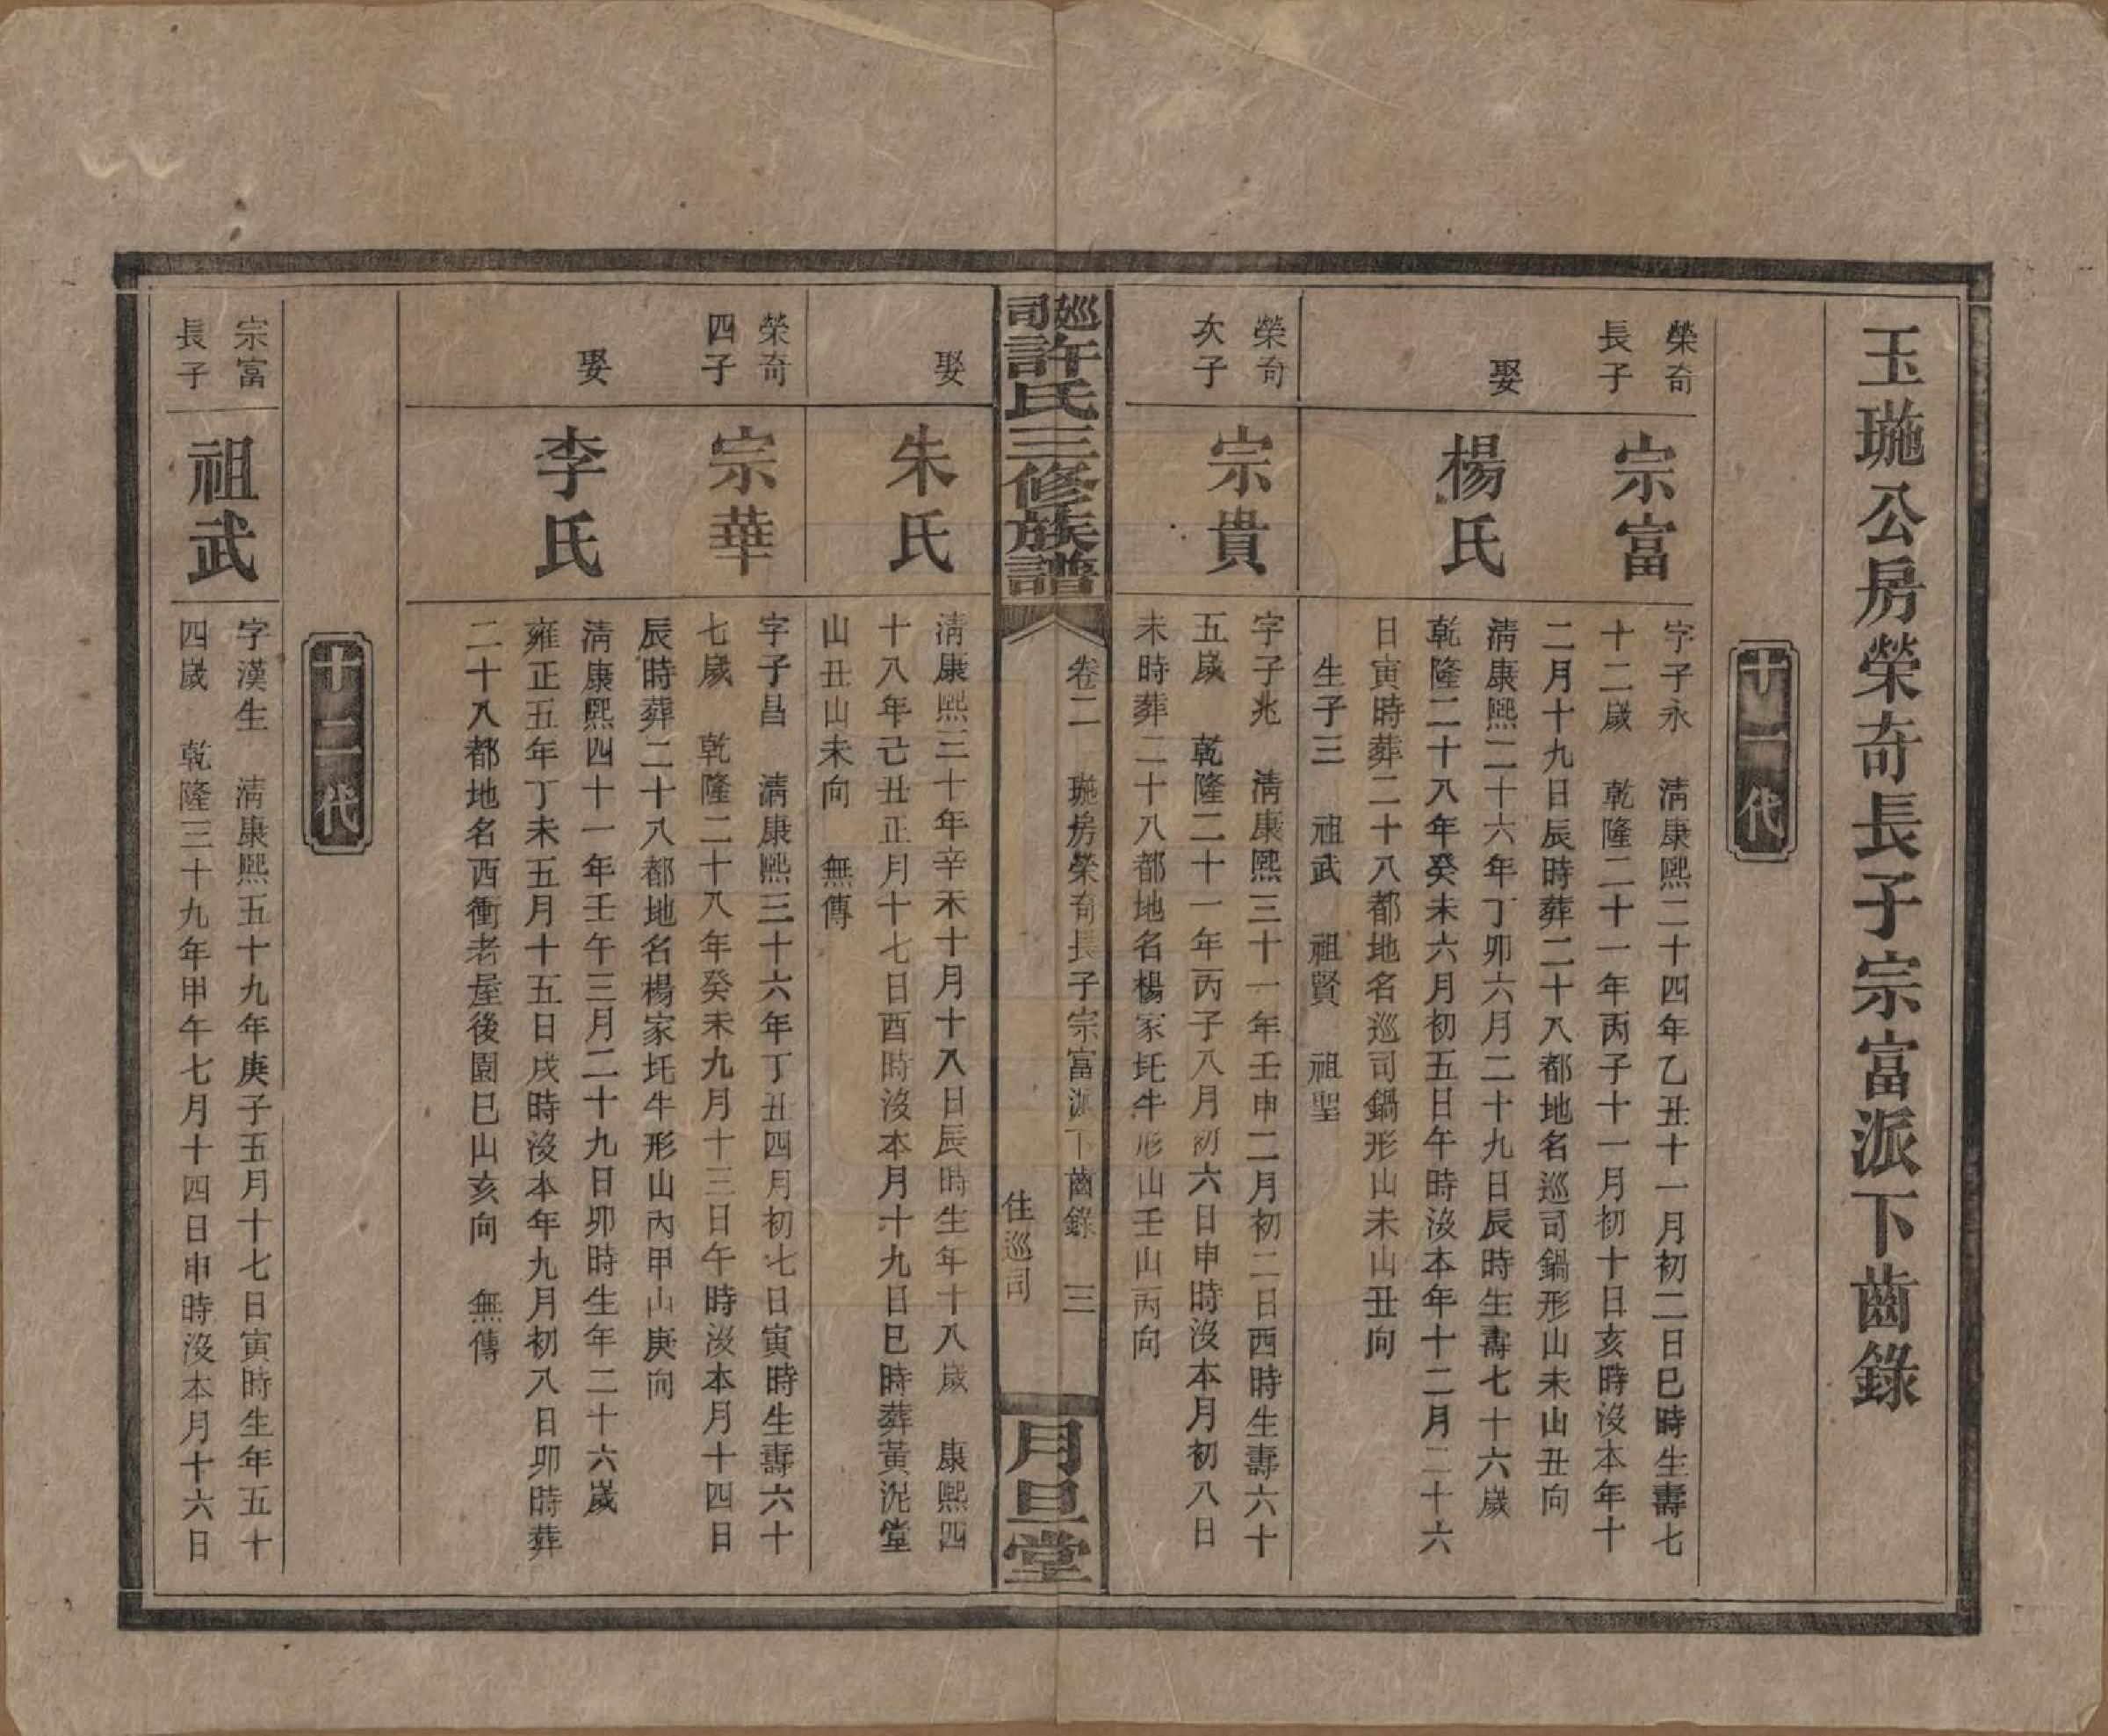 玉璇公房榮奇長子宗富派下齒錄
十一代
榮奇
長子
宗富
字子永　清康熙二十四年乙丑十一月初二日巳時生壽七
十二歲　乾隆二十一年丙子十一月初十日亥時沒本年十
二月十九日辰時葬二十八都地名巡司鍋形山未山丑向
娶
楊氏
清康熙二十六年丁卯六月二十九日辰時生壽七十六歲
乾隆二十八年癸未六月初五日午時沒本年十二月二十六
日寅時葬二十八都地名巡司鍋形山未山丑向
生子三　祖武　祖賢　祖聖
榮奇
次子
宗貴
字子兆　清康熙三十一年壬申二月初二日酉時生壽六十
五歲　乾隆二十一年丙子八月初六日申時沒本月初八日
未時葬二十八都地名楊家坉牛形山壬山丙向
巡司許氏三修族譜
卷二　璇房榮奇長子宗富派下齒錄　三
住巡司
月旦堂
娶
朱氏
清康熙三十年辛未十月十八日辰時生年十八歲　康熙四
十八年己丑正月十七日酉時沒本月十九日巳時葬黃泥堂
山丑山未向　無傳
榮奇
四子
宗華
字子昌　清康熙三十六年丁丑四月初七日寅時生壽六十
七歲　乾隆二十八年癸未九月十三日午時沒本月十四日
辰時葬二十八都地名楊家坉牛形山內甲山庚向
娶
李氏
清康熙四十一年壬午三月二十九日卯時生年二十六歲
雍正五年丁未五月十五日戌時沒本年九月初八日卯時葬
二十八都地名西衝老屋後園巳山亥向　無傳
十二代
宗富
長子
祖武
字漢生　清康熙五十九年庚子五月十七日寅時生年五十
四歲　乾隆三十九年甲午七月十四日申時沒本月十六日